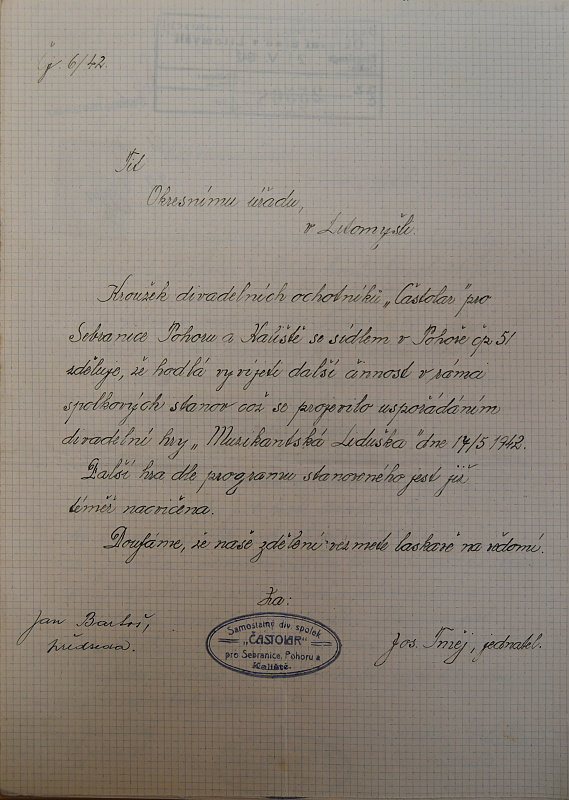 Čj. 6/42.
Tit
Okresnímu úřadu,
v Litomyšli.
Kroužek divadelních ochotníků „Častolar" pro
Sebranice Pohoru a Kaliště se sídlem v Pohoře čp 51
zděluje, že hodlá vyvíjeti další činnost v rámci
spolkových stanov což se projevilo uspořádáním
divadelní hry „Muzikantská Liduška" dne 17/5 1942.
Další hra dle programu stanoveného jest již
téměř nacvičena.
Doufáme, že naše zdělení vezmete laskavě na vědomí.
Za:
Jan Bartoš,
předseda.
Samostatný div. spolek
„ČASTOLAR"
pro Sebranice, Pohoru a
Kaliště.
Jos. , jednatel.